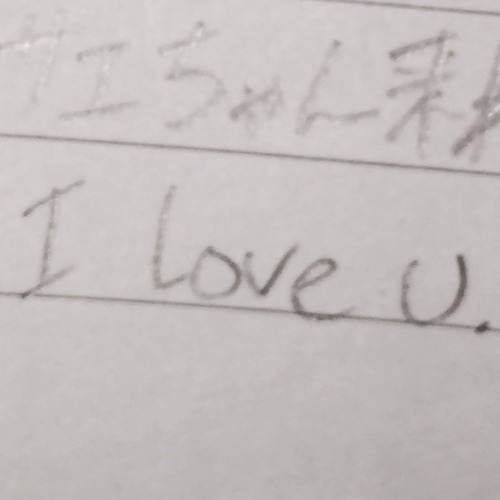 エちゃん
I love U.